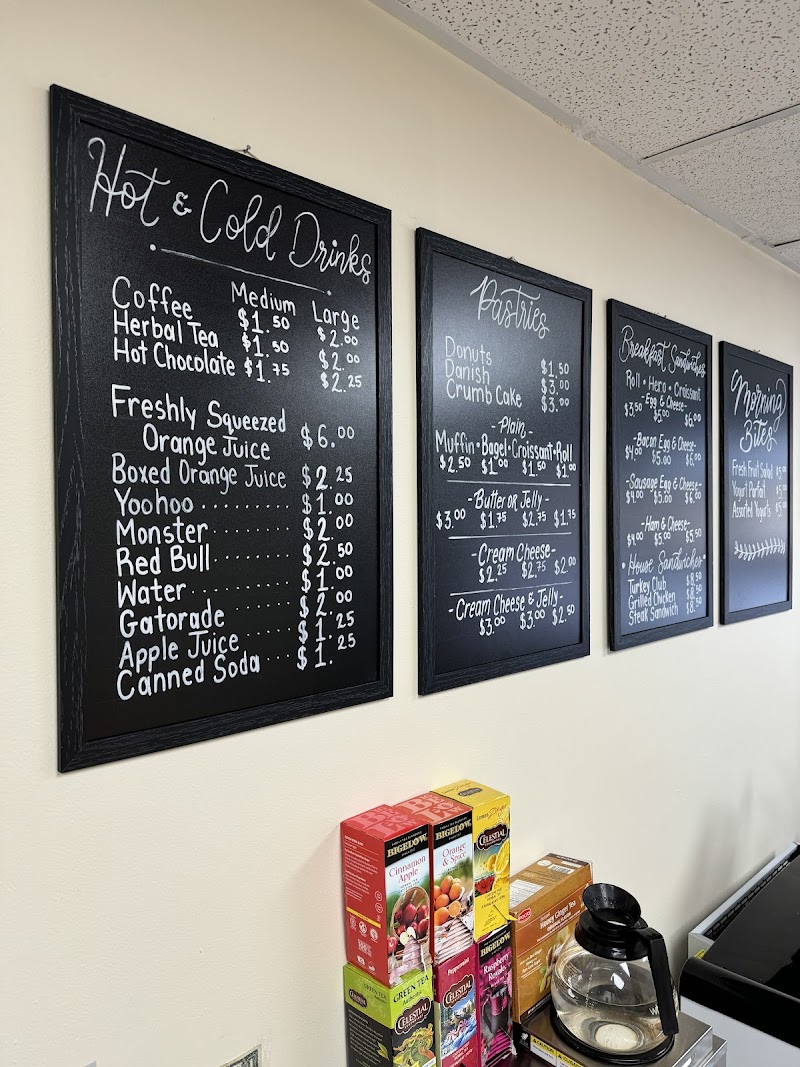 Hot & Cold Drinks
Medium Large
Coffee $1.50 $2.00
Herbal Tea $1.50 $2.00
Hot Chocolate $1.75 $2.25
Freshly Squeezed
Orange Juice $6.00
Boxed Orange Juice $2.25
Yoohoo ........ $1.00
Monster ....... $2.00
Red Bull ...... $2.50
Water ........ $1.00
Gatorade ..... $2.00
Apple Juice .... $1.25
Canned Soda ... $1.25
Pastries
Donuts $1.50
Danish $3.00
Crumb Cake $3.00
-Plain-
Muffin • Bagel • Croissant • Roll
$2.50 $1.00 $1.50 $1.00
-Butter or Jelly-
$3.00 $1.75 $2.75 $1.75
-Cream Cheese-
$2.25 $2.75 $2.00
-Cream Cheese & Jelly-
$3.00 $3.00 $2.50
Breakfast Sandwiches
Roll • Hero • Croissant
-Egg & Cheese-
$3.50 $5.00 $6.00
-Bacon Egg & Cheese-
$4.00 $5.00 $6.00
-Sausage Egg & Cheese-
$4.00 $5.00 $6.00
-Ham & Cheese-
$4.00 $5.00 $5.50
• House Sandwiches •
Turkey Club $8.50
Grilled Chicken $8.50
Steak Sandwich $8.50
Morning
Bites
Fresh Fruit Salad
Yogurt Parfait
Assorted Yogurts
BIGELOW
Cinnamon
Apple
BIGELOW
Orange
& Spice
CELESTIAL
Honey Ginger Tea
GREEN TEA
CELESTIAL
Peppermint
CELESTIAL
BIGELOW
Raspberry
Royale